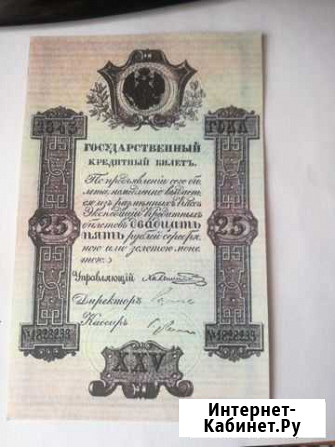 1843 ГОДА
ГОСУДАРСТВЕННЫЙ
КРЕДИТНЫЙ БИЛЕТЪ.
По предъявленіи сего би-
лета, немедленно выдает-
ся изъ размѣнныхъ кассъ
Экспедиціи Кредитныхъ
билетовъ ДВАДЦАТЬ
ПЯТЬ рублей серебря-
ною или золотою моне-
тою.
25 25
Управляющій
Директоръ
Кассиръ
№1222233 №1222233
XXV
Интернет-
Кабинет.Ру